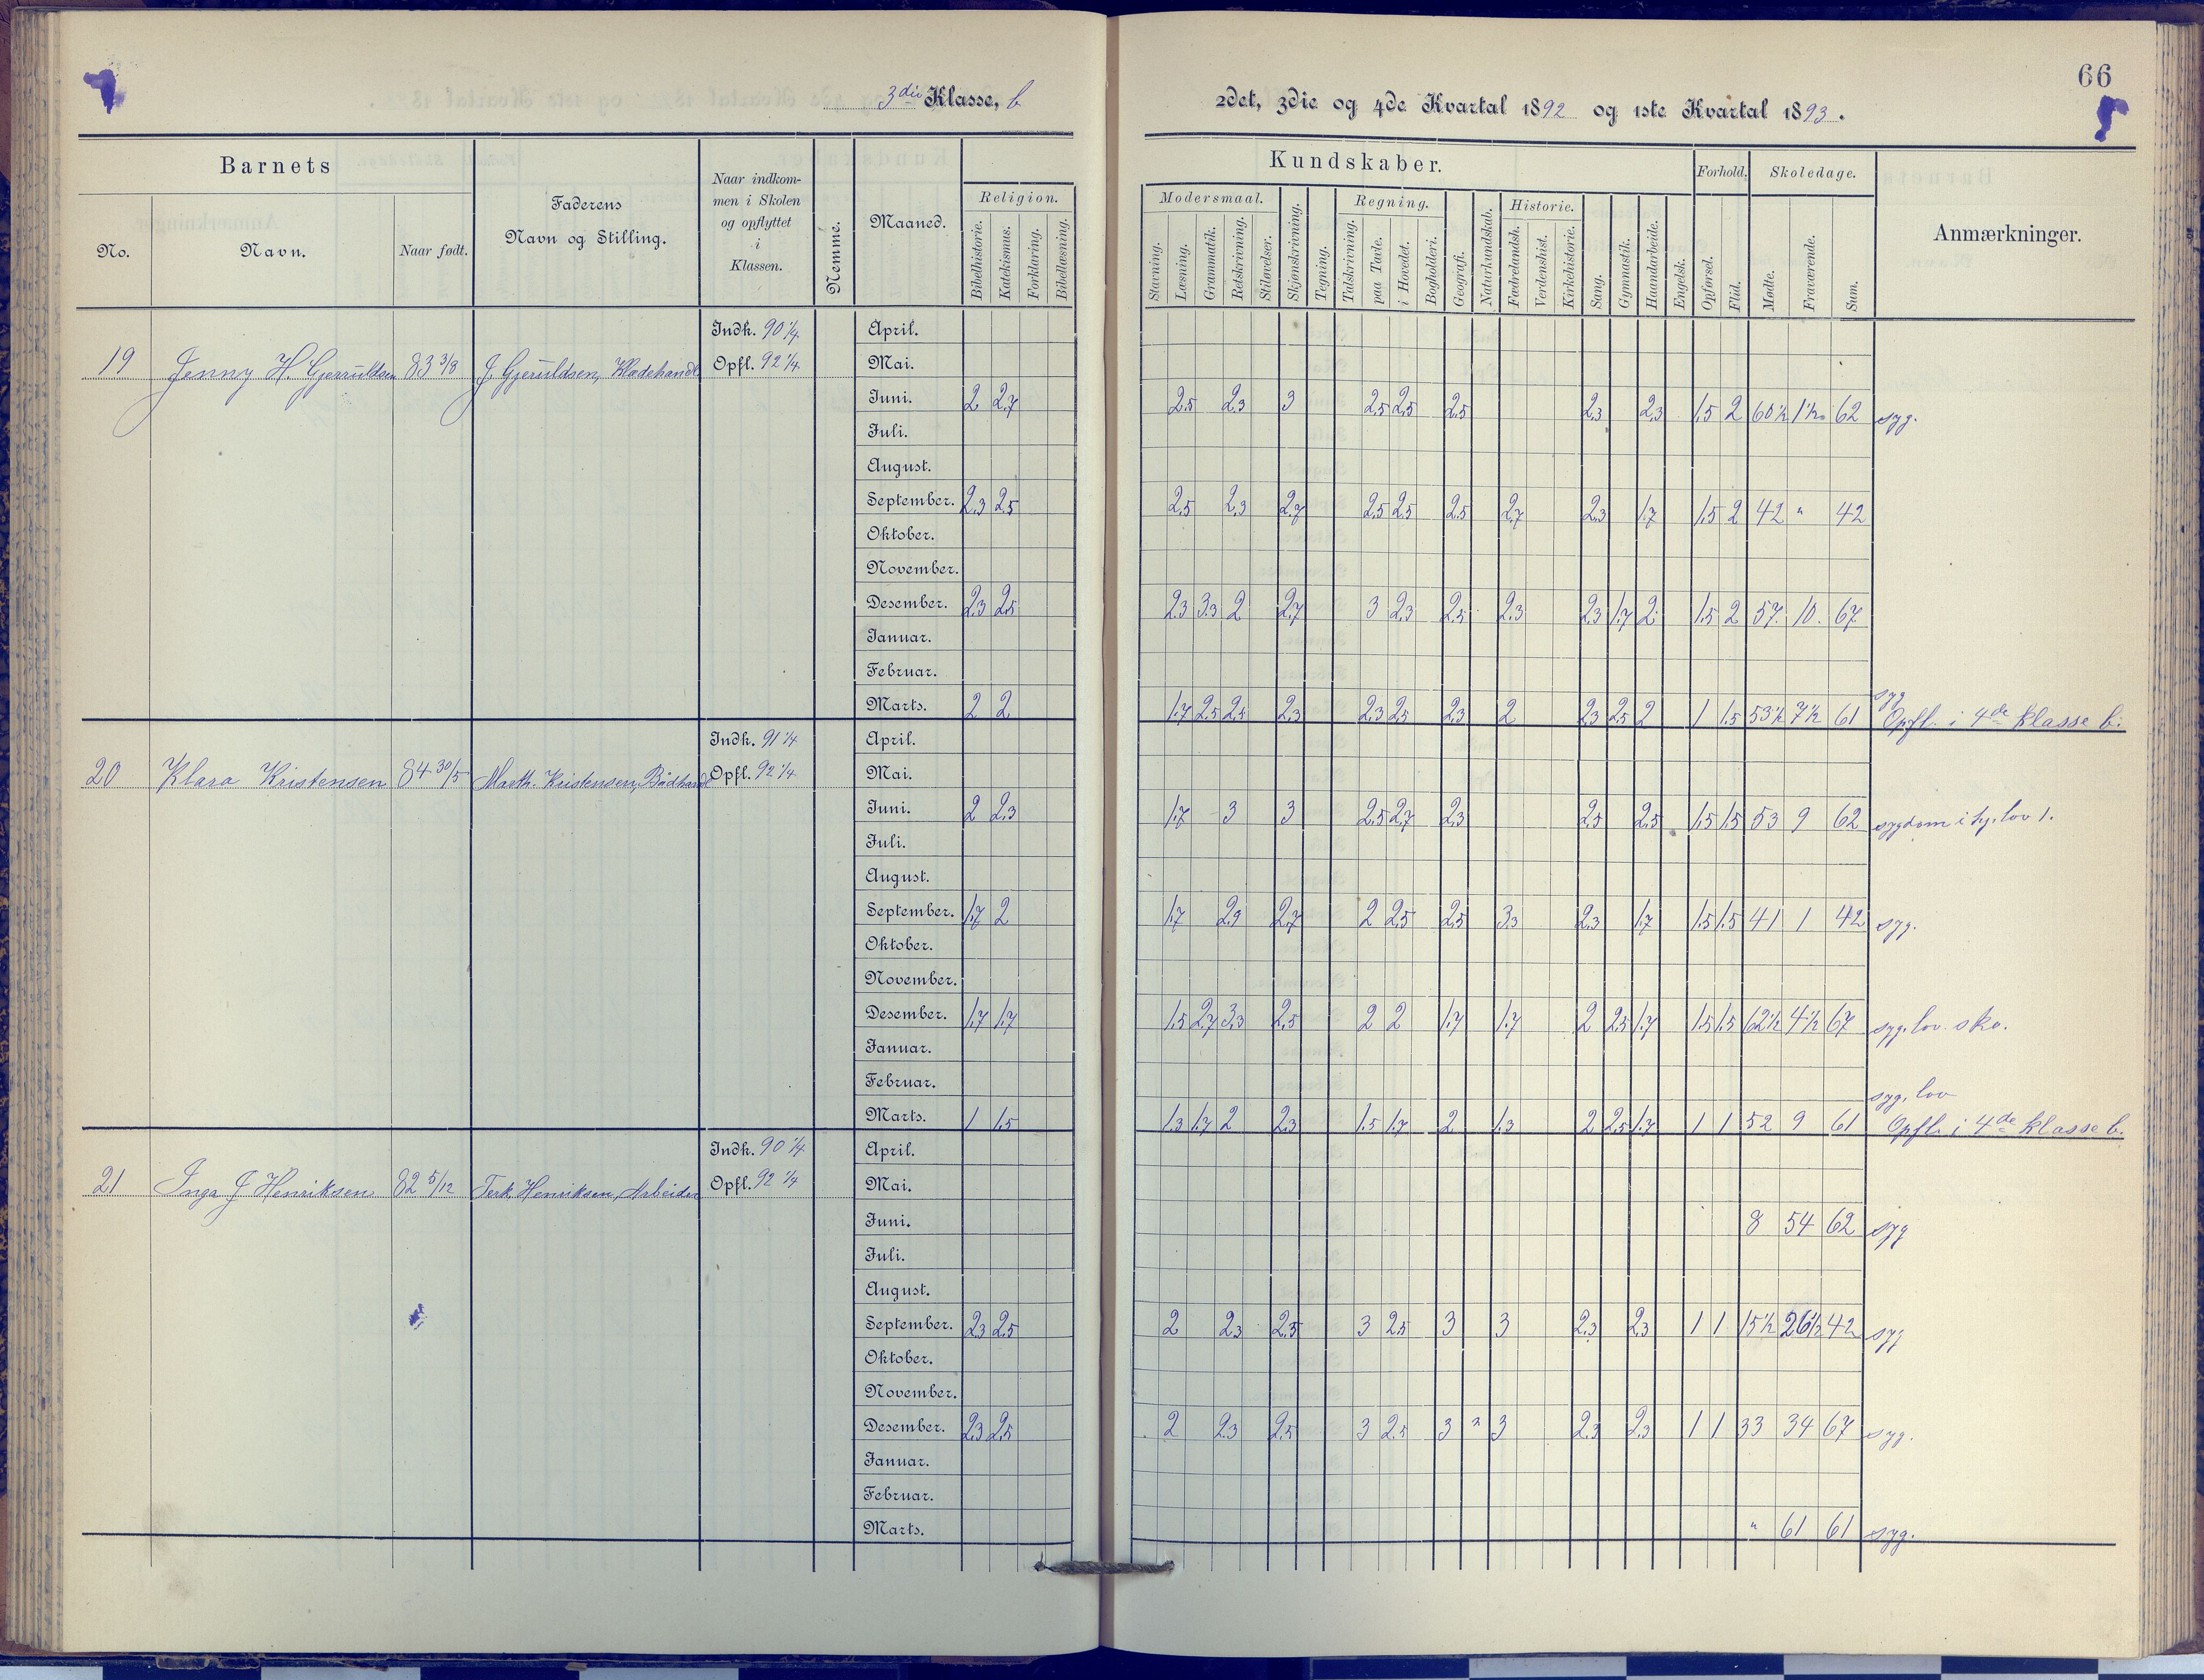 66
3die Klasse, b
2det, 3die og 4de Kvartal 1892 og 1ste Kvartal 1893.
Barnets
No.
Navn.
Naar født.
Faderens
Navn og Stilling.
Naar indkom-
men i Skolen
og opflyttet
i
Klassen.
Nemme.
Maaned.
Kundskaber.
Religion.
Bibelhistorie.
Katekismus.
Forklaring.
Bibellæsning.
Modersmaal.
Stavning.
Læsning.
Grammatik.
Retskrivning.
Stiløvelser.
Skjønskrivning.
Tegning.
Regning.
Talskrivning.
paa Tavle.
i Hovedet.
Bogholderi.
Geografi.
Naturkundskab.
Historie.
Fædrelandsh.
Verdenshist.
Kirkehistorie.
Sang.
Gymnastik.
Haandarbeide.
Engelsk.
Forhold.
Opførsel.
Flid.
Skoledage.
Mødte.
Fraværende.
Sum.
Anmærkninger.
Indk. 90 1/4 April.
19 Jenny H. Gjeruldsen 83 3/8 J. Gjeruldsen, Opfl. 92 1/4 Mai.
Juni. 2 2.7 2.5 2.3 3 2.5 2.5 2.5 2.3 2.3 1.5 2 60 1/2 1 1/2 62 syg.
Juli.
August.
September. 2.3 2.5 2.5 2.3 2.7 2.5 2.5 2.5 2.7 2.3 1.7 1.5 2 42 " 42
Oktober.
November.
Desember. 2.3 2.5 2.3 3.3 2 2.7 3 2.3 2.5 2.3 2.3 1.7 2 1.5 2 57 10 67
Januar.
Februar.
syg
Marts. 2 2 1.7 2.5 2.5 2.3 2.3 2.5 2.3 2 2.3 2.5 2 1 1.5 53 1/2 7 1/2 61 Opfl. i 4de klasse b.
Indk. 91 1/4 April.
20 Klara Kristensen 84 30/5 Kristensen, Opfl. 92 1/4 Mai.
Juni. 2 2.3 1.7 3 3 2.5 2.7 2.3 2.5 2.5 1.5 1.5 53 9 62 sygdom i hj. lov 1.
Juli.
August.
September. 1.7 2 1.7 2.9 2.7 2 2.5 2.5 3.3 2.3 1.7 1.5 1.5 41 1 42 syg.
Oktober.
November.
Desember. 1.7 1.7 1.5 2.7 3.3 2.5 2 2 1.7 1.7 2 2.5 1.7 1.5 1.5 62 1/2 4 1/2 67 syg, lov. sko.
Januar.
Februar.
syg, lov
Marts. 1 1.5 1.3 1.7 2 2.3 1.5 1.7 2 1.3 2 2.5 1.7 1 1 52 9 61 Opfl. i 4de klasse b.
Indk. 90 1/4 April.
21 Inga J Henriksen 82 5/12 Terk. Henriksen, Arbeider Opfl. 92 1/4 Mai.
Juni. 8 54 62 syg
Juli.
August.
September. 2.3 2.5 2 2.3 2.5 3 2.5 3 3 2.3 2.3 1 1 15 1/2 26 1/2 42 syg
Oktober.
November.
Desember. 2.3 2.5 2 2.3 2.5 3 2.5 3 " 3 2.3 2.3 1 1 33 34 67 syg.
Januar.
Februar.
Marts. " 61 61 syg.